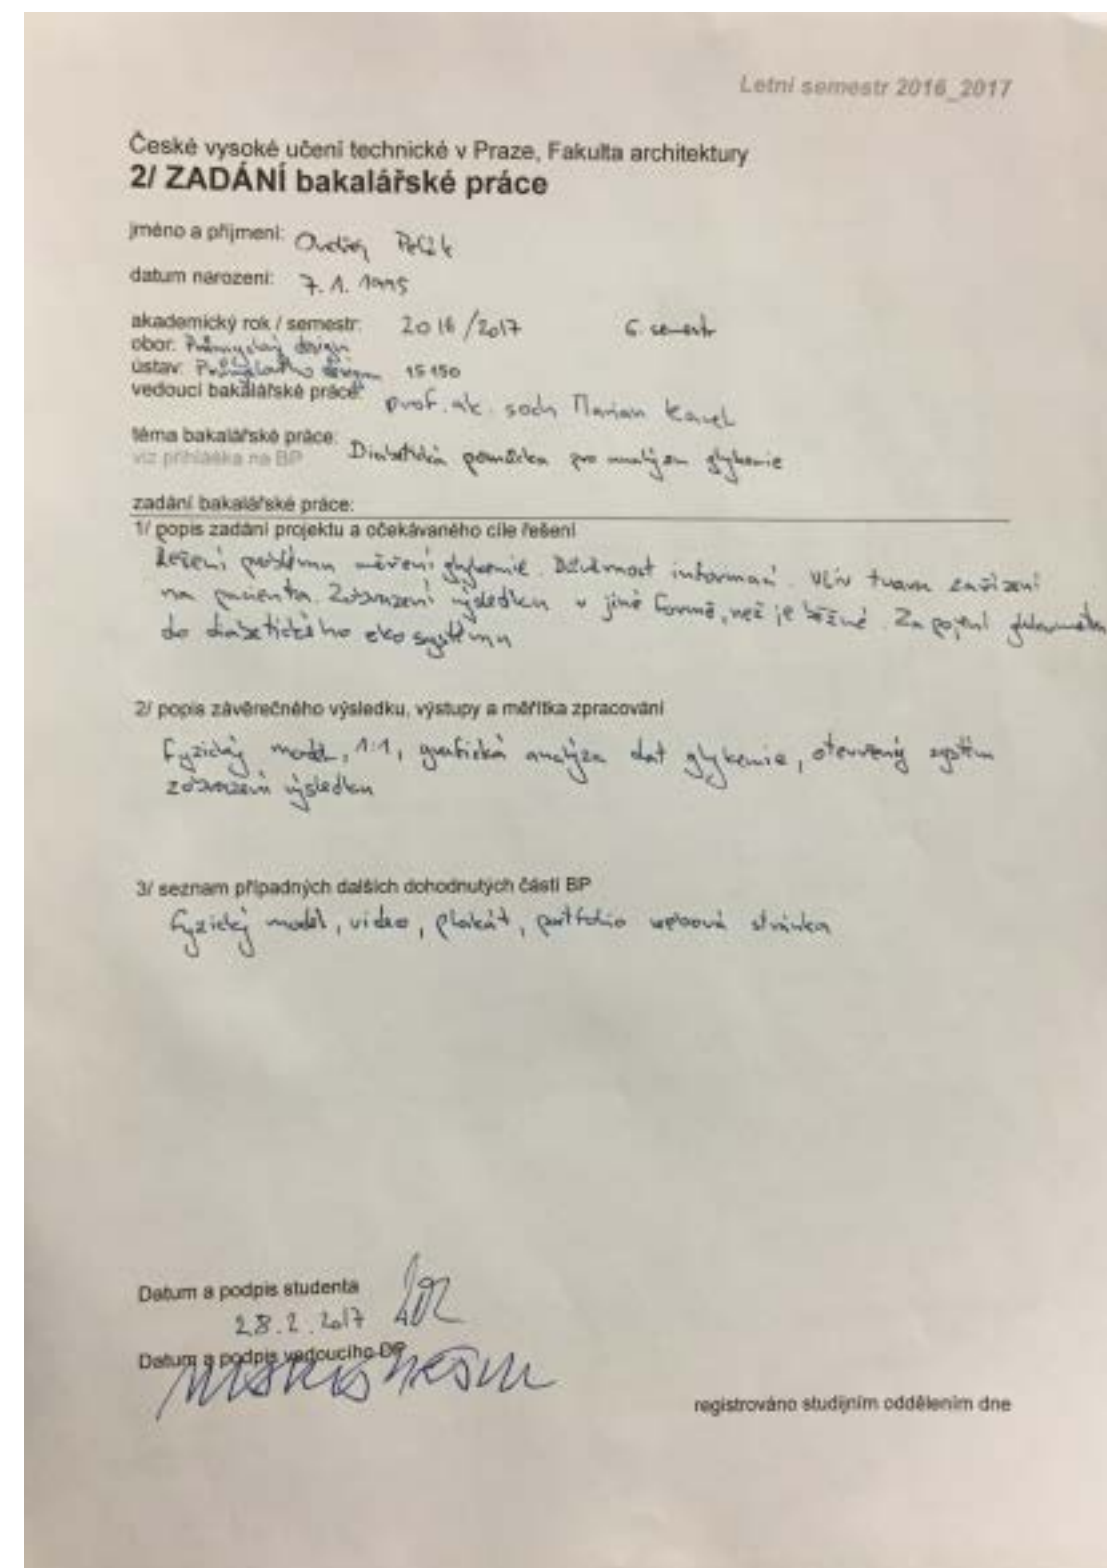 Letní semestr 2016_2017
České vysoké učení technické v Praze, Fakulta architektury
2/ ZADÁNÍ bakalářské práce
jméno a příjmení: Ondřej
datum narození: 7. 1. 1995
akademický rok / semestr: 2016/2017 6. semestr
obor: Průmyslový design
ústav: Průmyslového designu 15150
vedoucí bakalářské práce: prof. ak. soch Marian Karel
téma bakalářské práce: Diabetická pomůcka pro analýzu glykemie
viz přihláška na BP
zadání bakalářské práce:
1/ popis zadání projektu a očekávaného cíle řešení
Řešení problému měření glykemie. Důvěrnost informací. Vliv tvaru zařízení
na pacienta. Zobrazení výsledku v jiné formě, než je běžné. Zapojení glukometru
do diabetického ekosystému
2/ popis závěrečného výsledku, výstupy a měřítka zpracování
Fyzický model, 1:1, grafická analýza dat glykemie, otevřený systém
zobrazení výsledku
3/ seznam případných dalších dohodnutých částí BP
fyzický model, video, plakát, portfolio webová stránka
Datum a podpis studenta
28. 2. 2017
Datum a podpis vedoucího DP
registrováno studijním oddělením dne